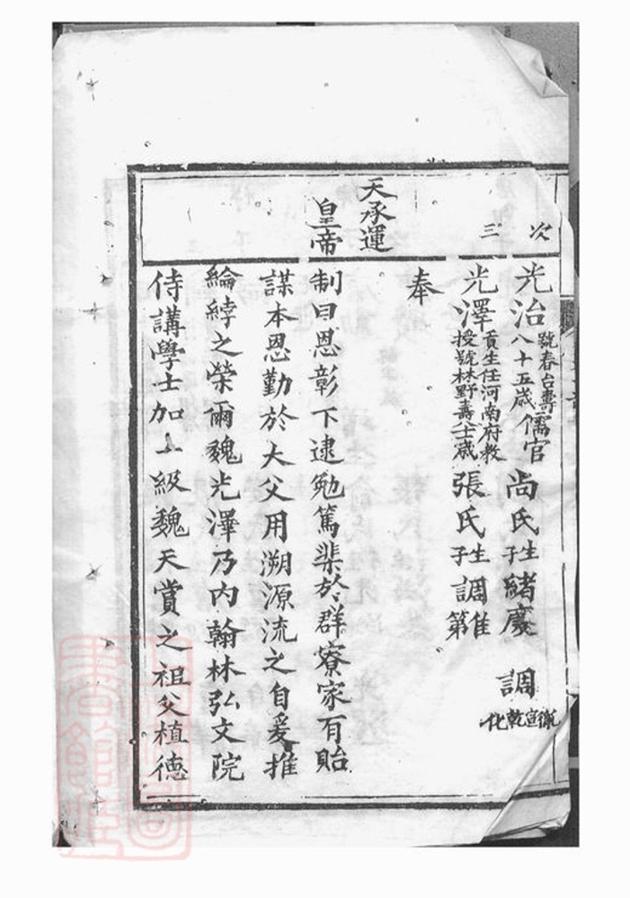 次 光治 號春台壽八十五歲 儒官 尚氏 生子 緒慶 調 宣乾化
三 光澤 貢生任河南府教授號林野壽八十歲 張氏 生子 調 第
奉
天承運
皇帝制曰恩彰下逮勉篤棐於群寮家有貽
謀本恩勤於大父用溯源流之自爰推
綸綍之榮爾魏光澤乃内翰林弘文院
侍講學士加一級魏天賞之祖父植德